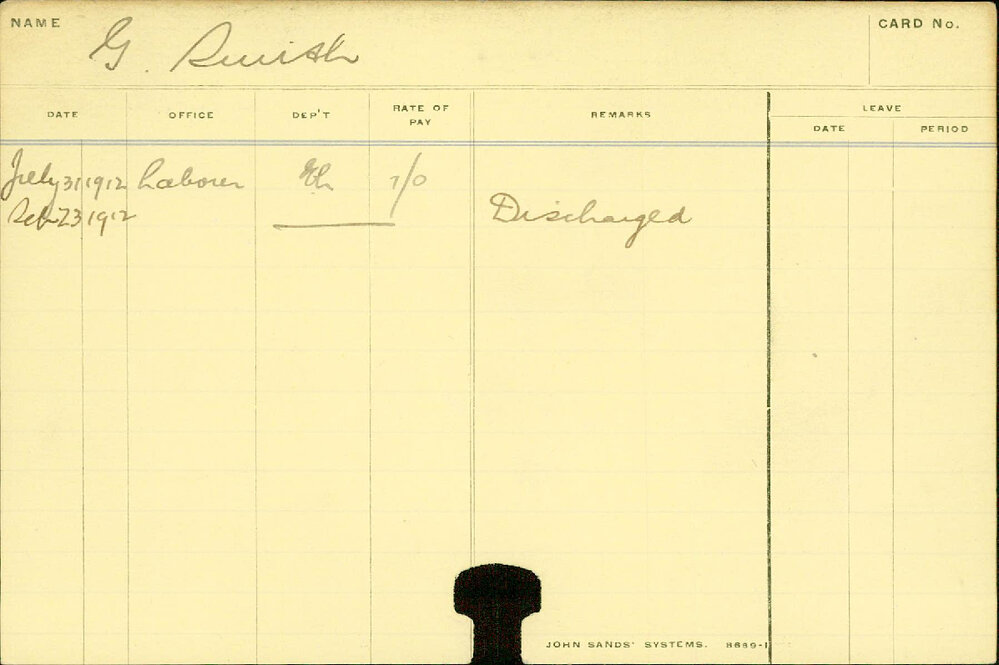 NAME G. Smith CARD No.
DATE OFFICE DEP'T RATE OF PAY REMARKS LEAVE
DATE PERIOD
July 31 1912 Laborer 7/0
Sep 23 1912 Discharged
JOHN SANDS' SYSTEMS. 8689-1